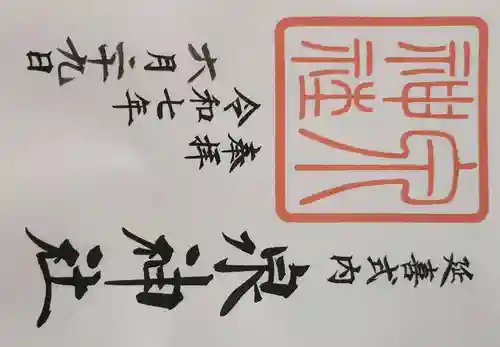 延喜式内
泉神社
泉神社
奉拝
令和七年
六月二十九日